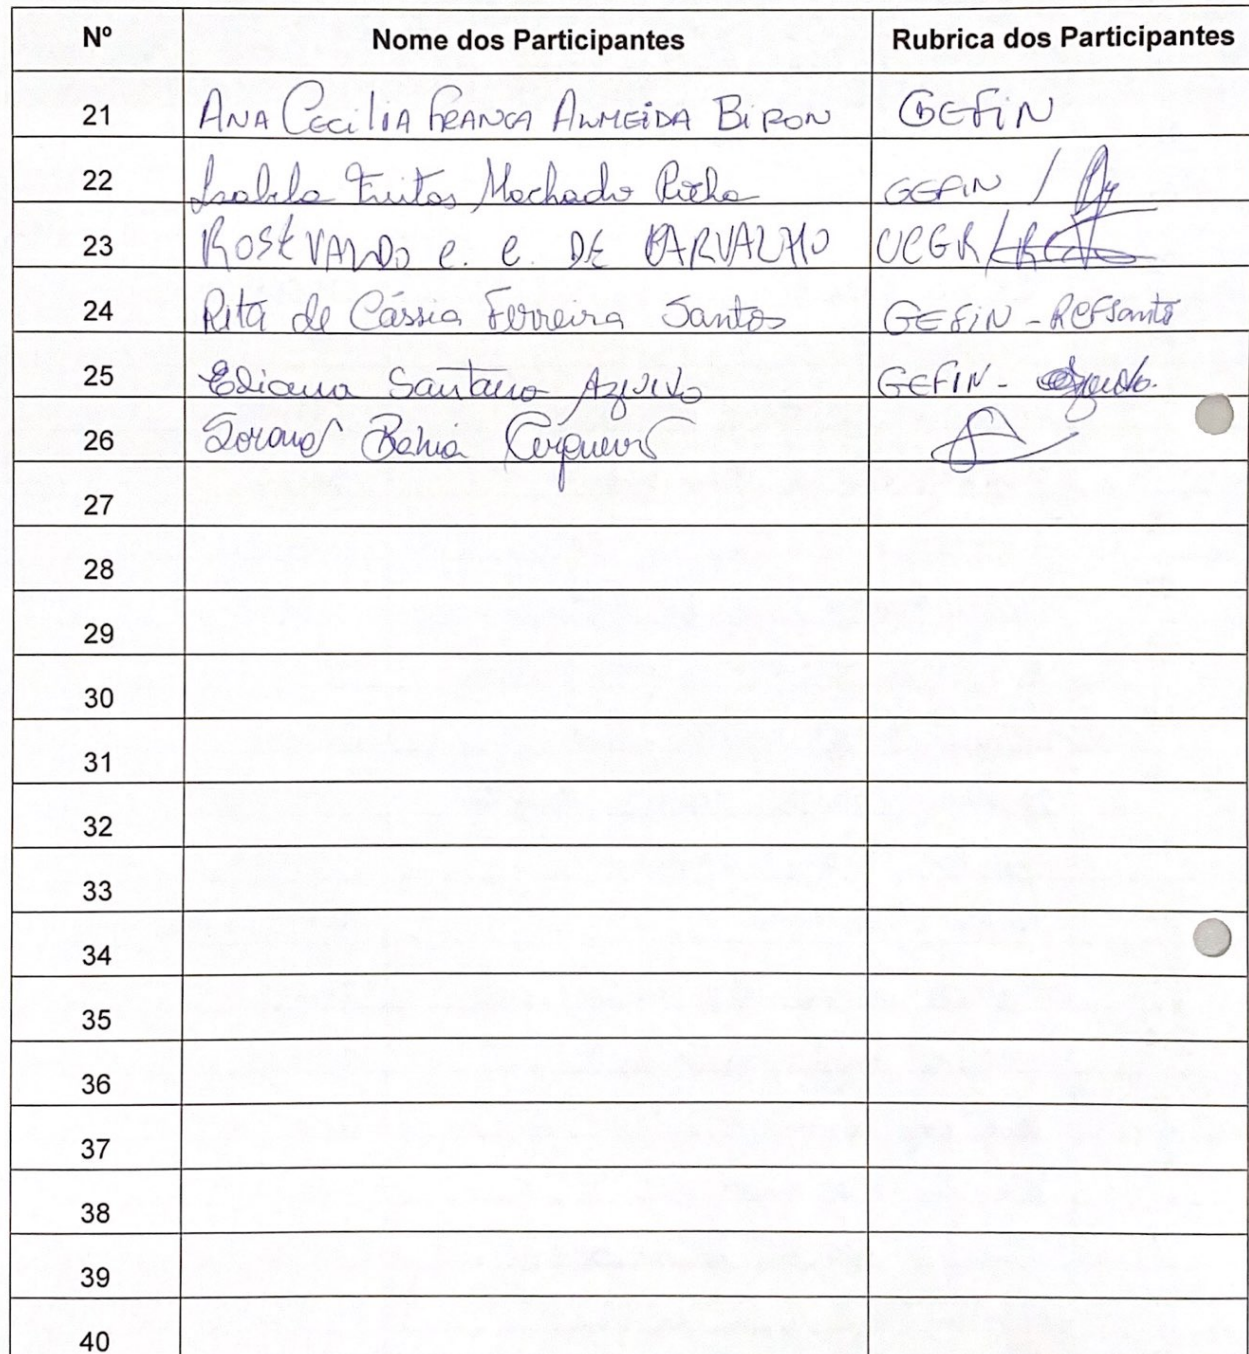 Nº Nome dos Participantes Rubrica dos Participantes
21 ANA CECILIA FRANCA ALMEIDA BIRON GEFIN
22 Isabela Freitas Machado Rocha GEFIN /
23 ROSEVALDO C. C. DE CARVALHO UCGR/
24 Rita de Cássia Ferreira Santos GEFIN - RCFSantos
25 Ediana Santana Azevedo GEFIN - Azevedo.
26 Bahia Cerqueira
27
28
29
30
31
32
33
34
35
36
37
38
39
40